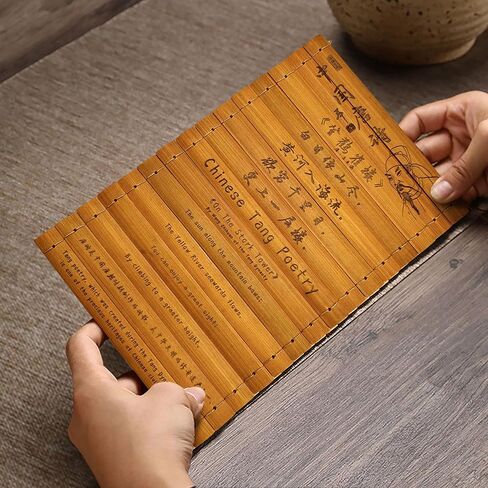 中国唐诗
《登鹳雀楼》
白日依山尽,
黄河入海流。
欲穷千里目,
更上一层楼。
Chinese Tang Poetry
《On The Stork Tower》
The sun along the mountain bows;
The Yellow River seawards flows.
You can enjoy a great sight;
By climbing to a greater height.
Tang poetry, which was created during the Tang
is one of the precious heritages of Chinese